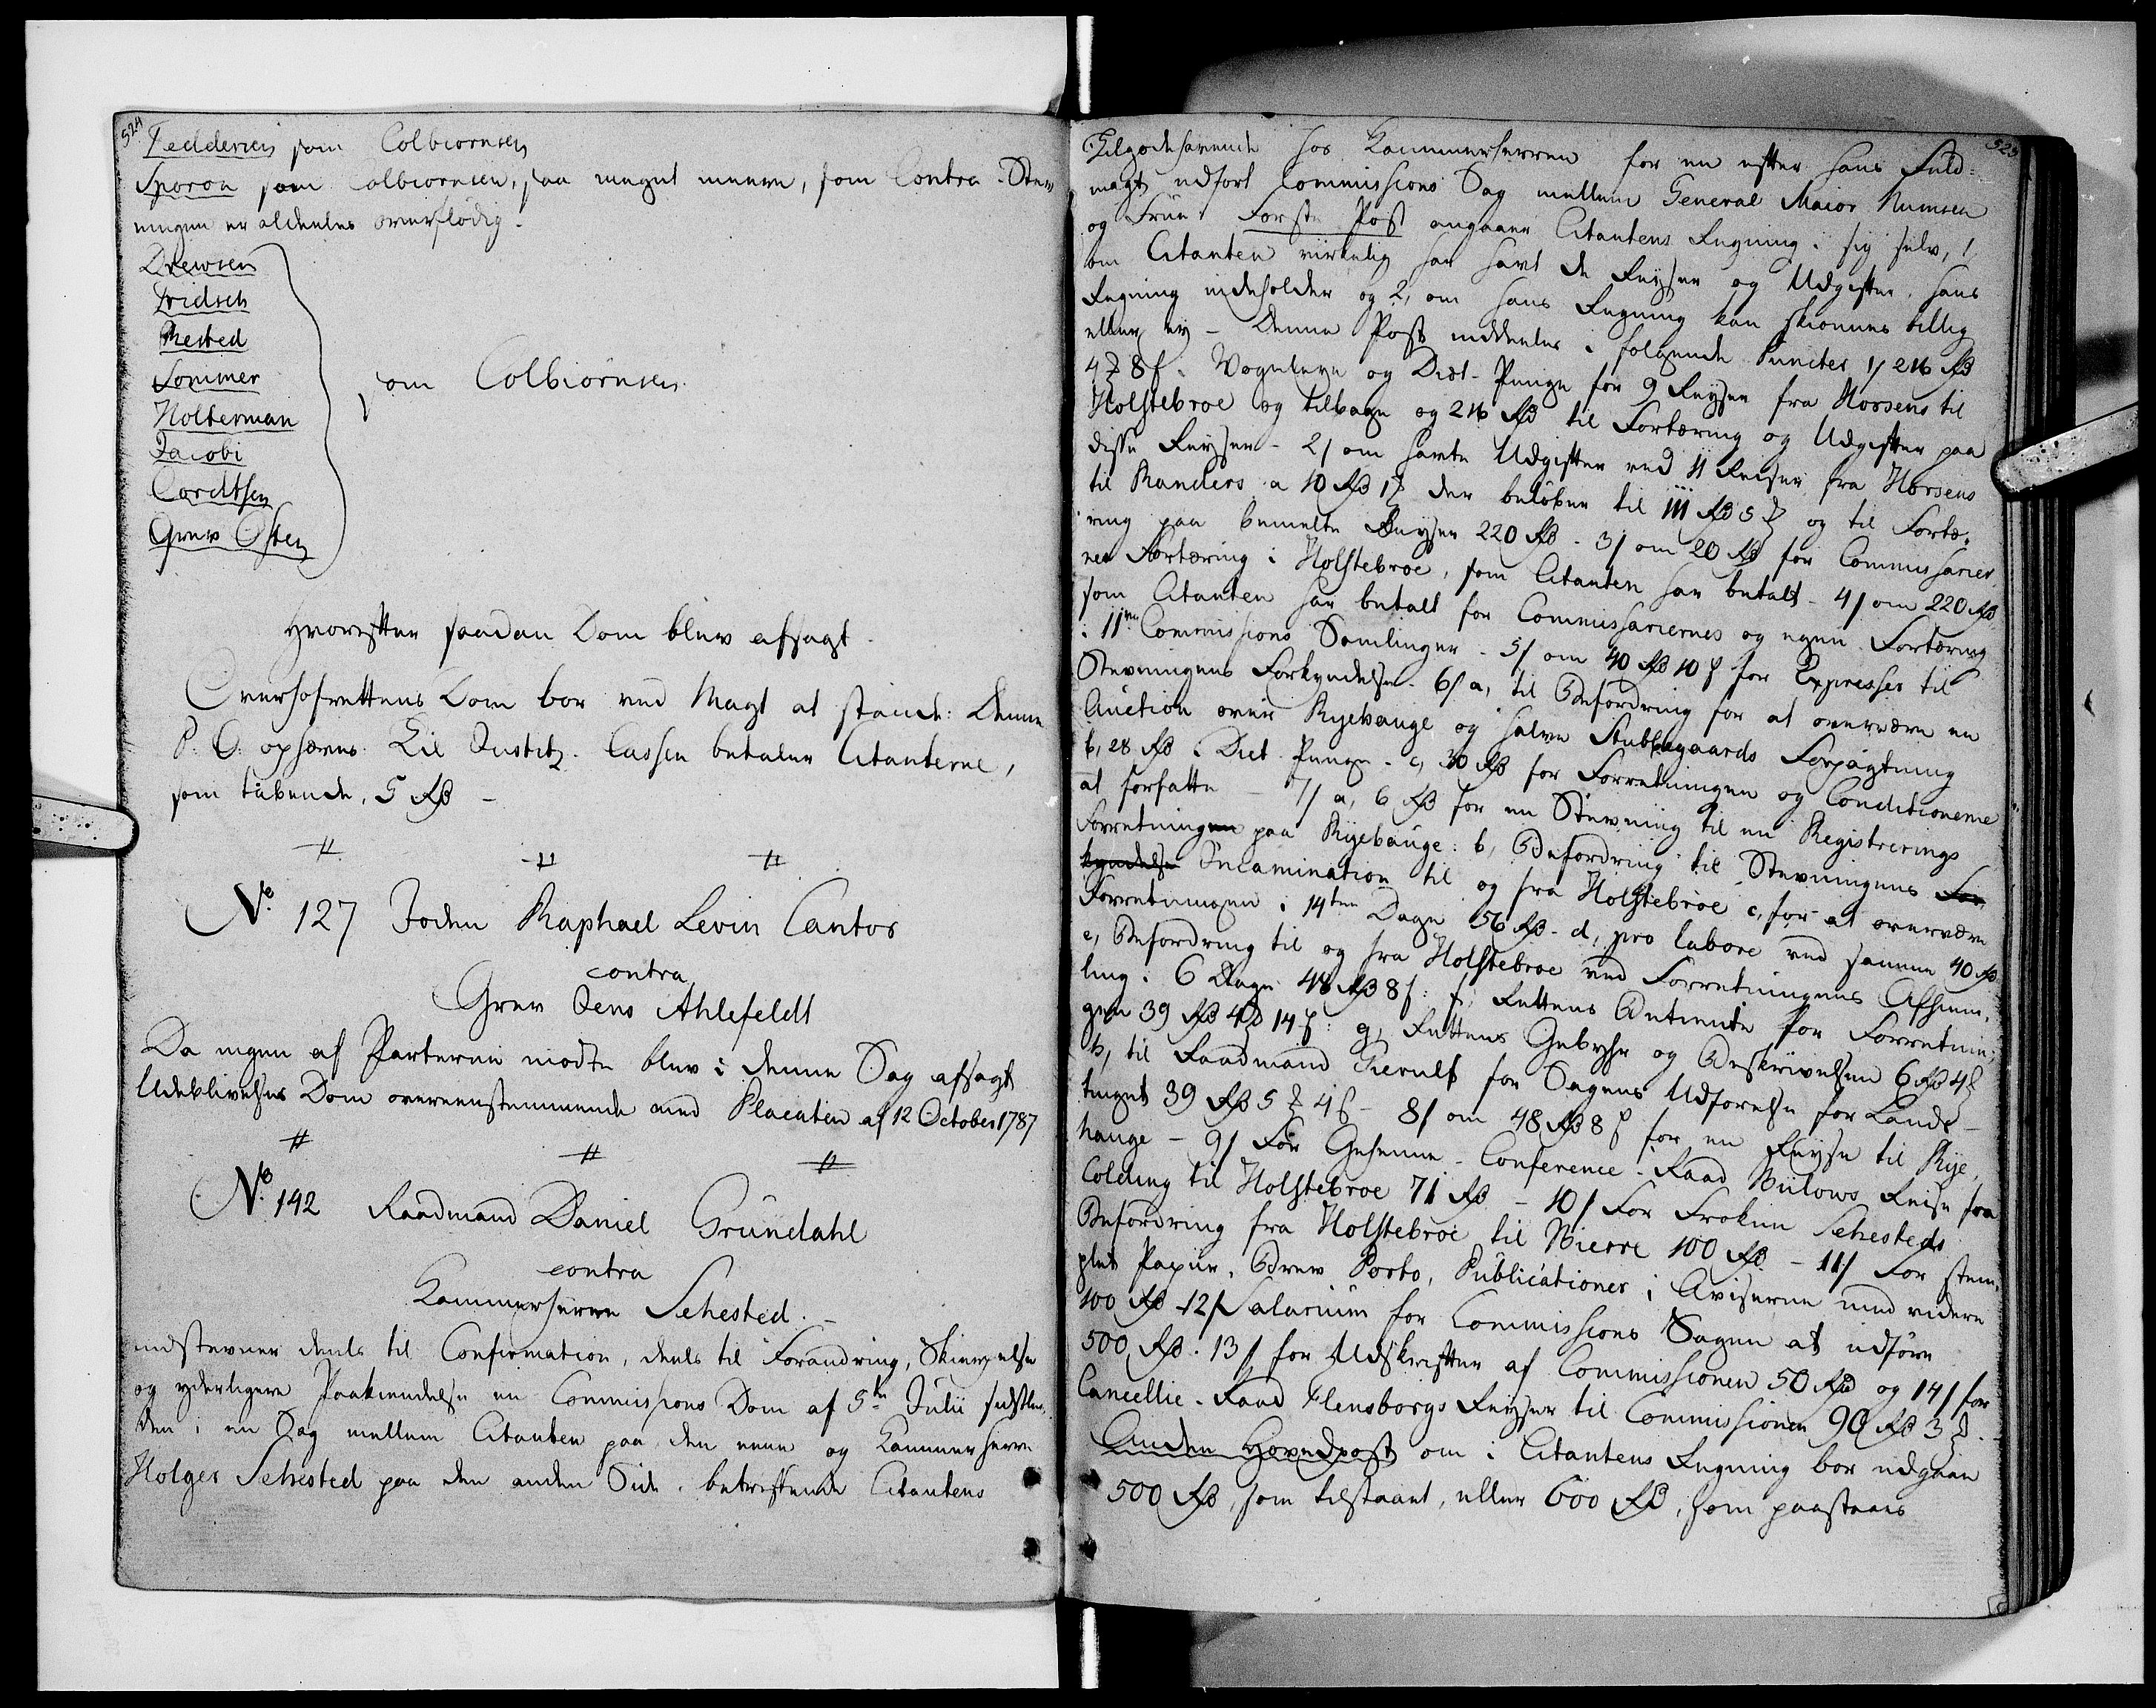 524
Feddersen som Colbiørnsen
Sporon som Colbiørnsen, saa meget meere, som Contra-Stev
ningen er aldeeles overflødig.
Drewsen
Fridsch
Rested
Sommer
Holterman
Jacobi
Cordtsen
Grev Osten
som Colbiørnsen.
Hvorefter saadan Dom blev afsagt.
Overhofrettens Dom bør ved Magt at stande: Denne
P. O. ophæves. Til Justitz-Cassen betaler Citanterne,
som tabende, 5 Rd -
No. 127 Joden Raphael Levin Cantor
contra
Grev Jens Ahlefeldt
Da ingen af Parterne mødte blev i denne Sag afsagt
Udeblivelses Dom overeenstemmende med Placaten af 12 October 1787
No. 142 Raadmand Daniel Gründahl
contra
Kammerherre Sehested.
indstevner deels til Confirmation, deels til Forandring, Skiærpelse
og yderligere Paakiendelse en Commissions Dom af 5te Julii sidstle-
den i en Sag mellem Citanten paa den eene og Kammerherre
Holger Sehested paa den anden Side, betreffende Citantens
525
Tilgodehavende hos Kammerherren for en efter hans Fuld-
magt udført Commissions Sag mellem General Maior Numsen
og Frue. Første Post angaaer Citantens Regning i sig selv, 1,
om Citanten virkelig har havt de Reyser og Udgifter, hans
Regning indeholder og 2, om hans Regning kan skiønnes billig
eller ey - Denne Post inddeeles i følgende Puncter 1/ 216 Rd
4 8 s. Vognleye og Diæt-Penge for 9 Reyser fra Horsens til
Holstebroe og tilbage og 216 Rd til Fortæring og Udgifter paa
disse Reyser - 2/ om havte Udgifter ved 11 Reiser fra Horsens
til Randers a 10 Rd 1 der beløber til 111 Rd 5 og til Fortæ-
ring paa bemelte Reyser 220 Rd - 3/ om 20 Rd for Commissarier
nes Fortæring i Holstebroe, som Citanten har betalt - 4/ om 220 Rd
som Citanten har betalt for Commissariernes og egen Fortæring
i 11ve Commissions Samlinger - 5/ om 40 Rd 10 s for Expresser til
Stevningens Forkyndelse - 6/ a, til Befordring for at overvære en
Auction over Ryehauge og halve Stubbegaards Forpagtning
b, 28 Rd i Diet Penge - c, 30 Rd for Forretningen og Conditionerne
at forfatte - 7/ a, 6 Rd for en Stevning til en Registrerings
Forretning paa Ryehauge: b, Befordring til Stevningens For-
kyndelse Incamination til og fra Holstebroe c, for at overvære
Forretningen i 14ten Dage 56 Rd - d, pro labore ved samme 40 Rd
e, Befordring til og fra Holstebroe ved Forretningens Afhiem-
ling i 6 Dage 48 Rd 8 s: f, Rettens Betiente for Forretnin-
gen 39 Rd 4 14 s: g, Rettens Gebyhr og Beskrivelsen 6 Rd 4 s
h, til Raadmand Pierulf for Sagens Udførelse for Lands-
tinget 39 Rd 5 4 s - 8/ om 48 Rd 8 s for en Reyse til Rye-
hauge - 9/ For Geheime-Conference-Raad Bülows Reise fra
Colding til Holstebroe 71 Rd - 10/ For Frøken Sehesteds
Befordring fra Holstebroe til Bierre 100 Rd - 11/ For stem-
plet Papiir, Brev Porto, Publicationer i Aviserne med videre
100 Rd - 12/ Salarium for Commissions Sagen at udføre
500 Rd - 13/ for Udskrifter af Commissionen 50 Rd og 14/ for
Cancellie-Raad Flensborgs Reyser til Commissionen 90 Rd 3 .-
Anden Hovedpost om i Citantens Regning bør udgaae
500 Rd, som tilstaaet, eller 600 Rd, som paastaaes